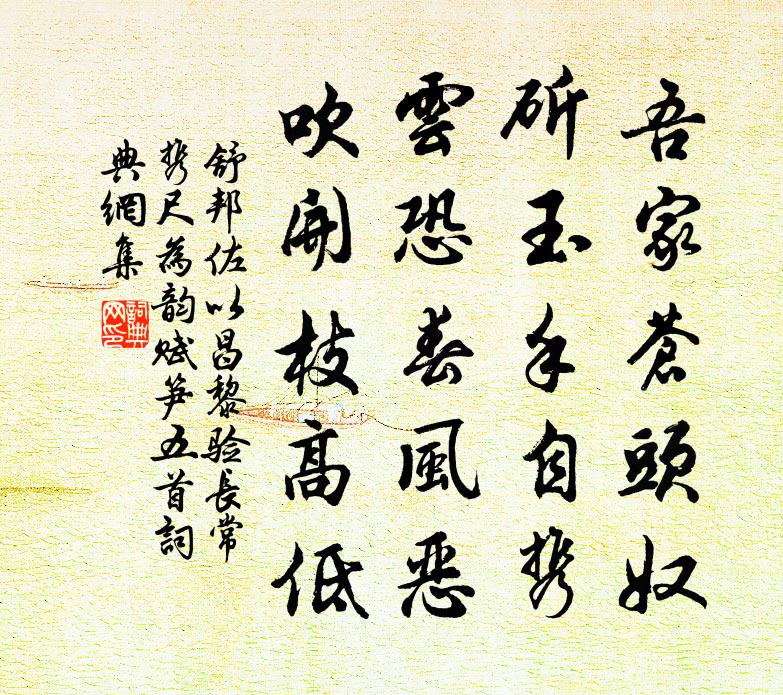 吾家蒼頭奴
斫玉手自携
雲恐春風惡
吹開枝高低
舒邦佐以昌黎验長常
携尺為韵赋笋五首詞
典網集
詞典
网印